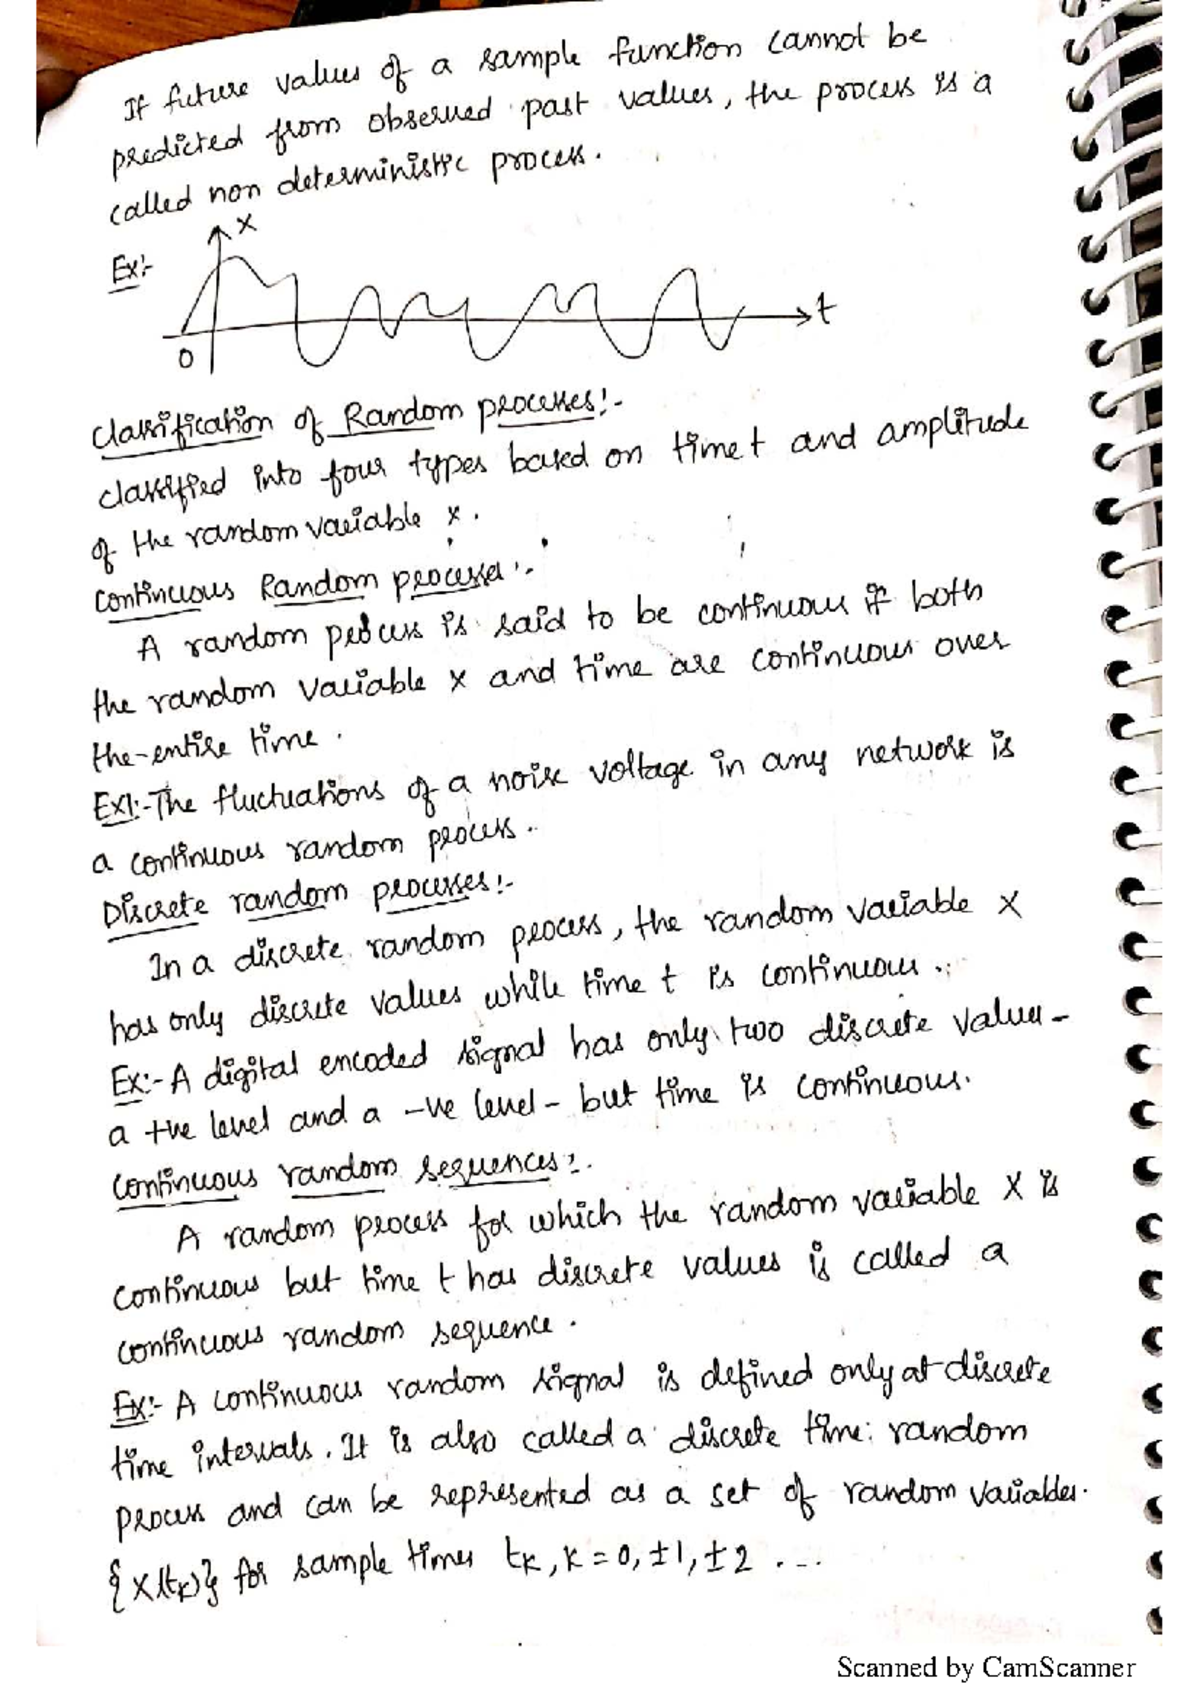 If future values of a sample function cannot be
predicted from observed past values, the process is a
called non deterministic process.
Ex:-
X
t
0
Classification of Random processes:-
classified into four types based on time t and amplitude
of the random variable x.
Continuous Random processes:-
A random process is said to be continuous if both
the random variable x and time are continuous over
the-entire time.
Ex1:-The fluctuations of a noise voltage in any network is
a continuous random process.
Discrete random processes:-
In a discrete random process, the random variable X
has only discrete values while time t is continuous.
Ex:-A digital encoded signal has only two discrete values-
a +ve level and a -ve level- but time is continuous.
Continuous random sequences:-
A random process for which the random variable X is
continuous but time t has discrete values is called a
continuous random sequence.
Ex:- A continuous random signal is defined only at discrete
time intervals. It is also called a discrete time random
process and can be represented as a set of random variables.
{X(tk)} for sample times tk, k=0, ±1, ±2 ....
Scanned by CamScanner